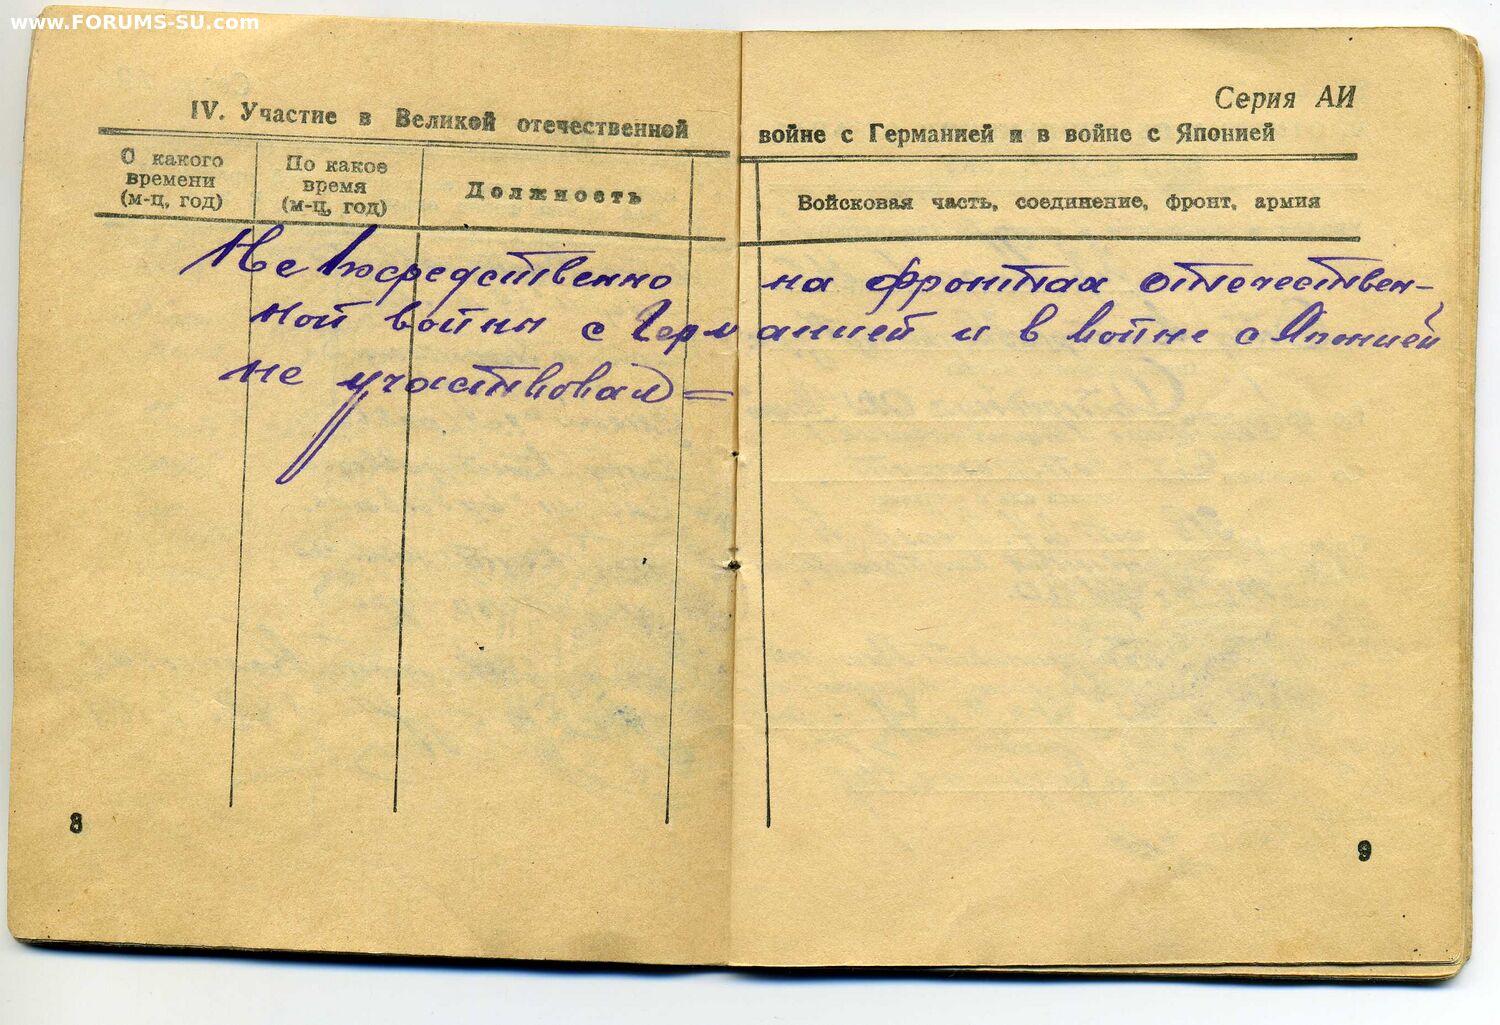 www.FORUMS-SU.com
Серия АИ
IV. Участие в Великой отечественной войне с Германией и в войне с Японией
С какого времени (м-ц, год)
По какое время (м-ц, год)
Должность
Войсковая часть, соединение, фронт, армия
Непосредственно на фронтах отечествен-
ной войны с Германией и в войне с Японией
не участвовал =
8
9